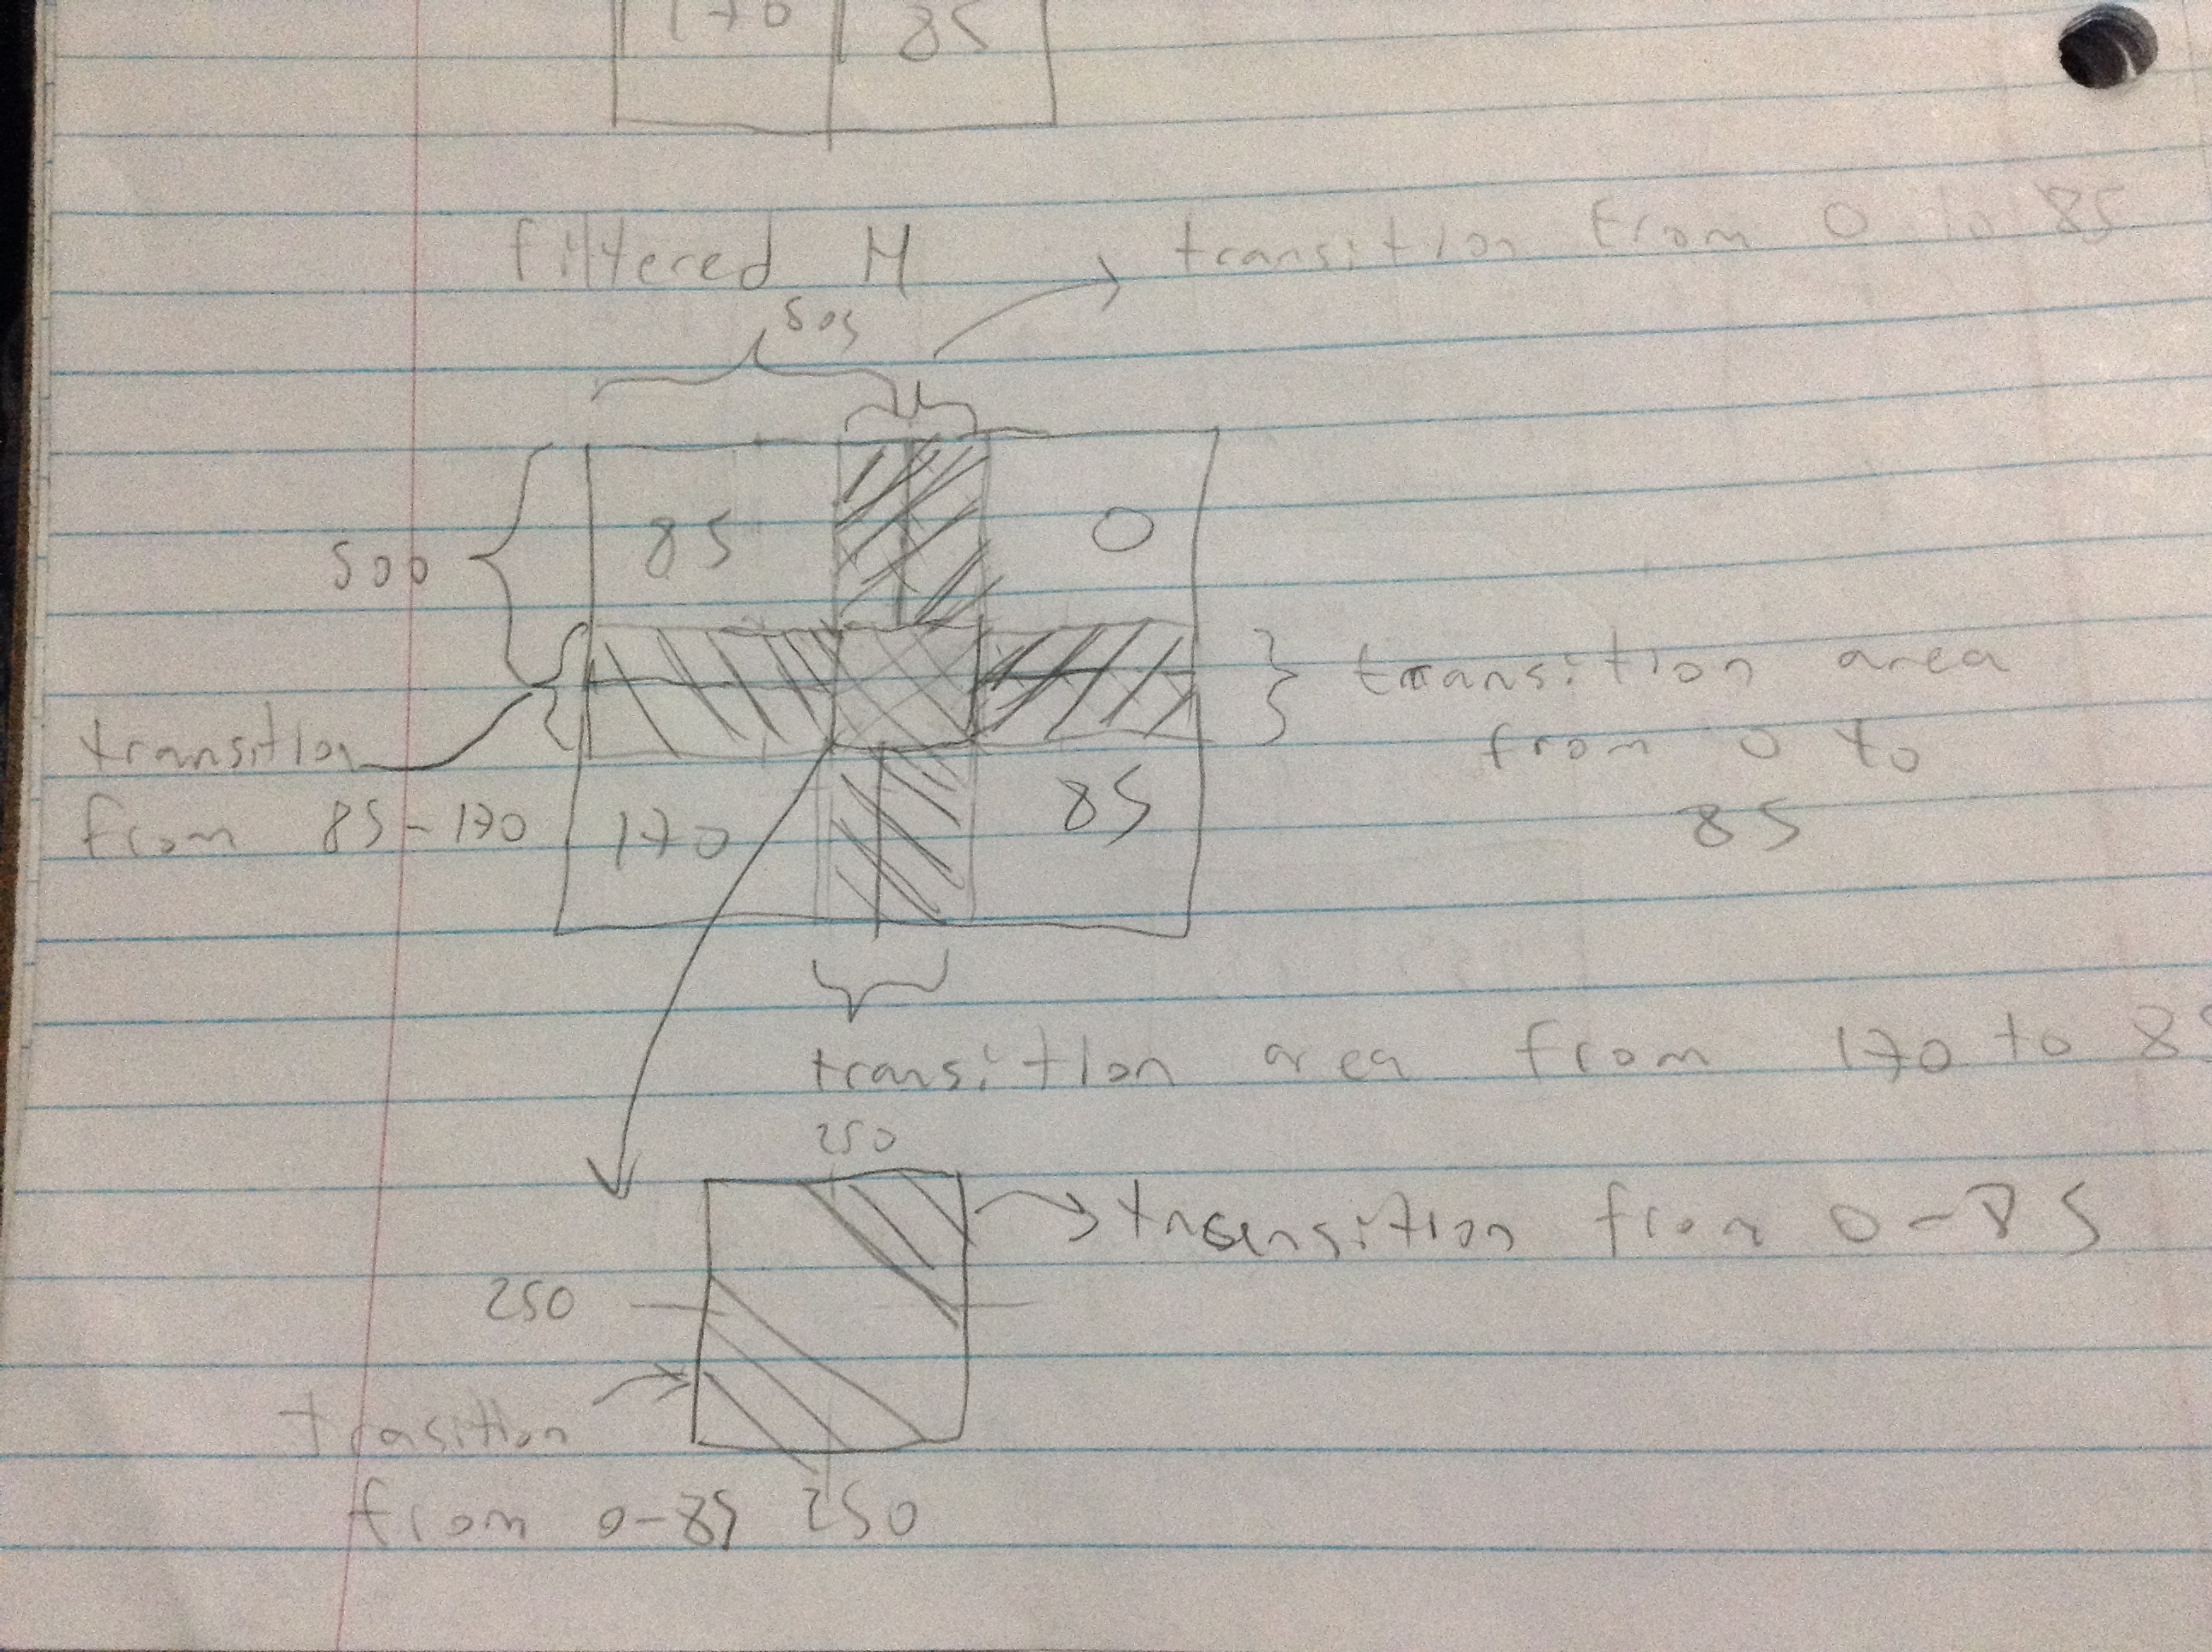 170 85
filtered H
transition from 0 to 85
505
500
85 0
transition
from 85-170
170 85
transition area
from 0 to
85
transition area from 170 to 8
250
250
trasensition from 0-85
trasition
from 0-85 250